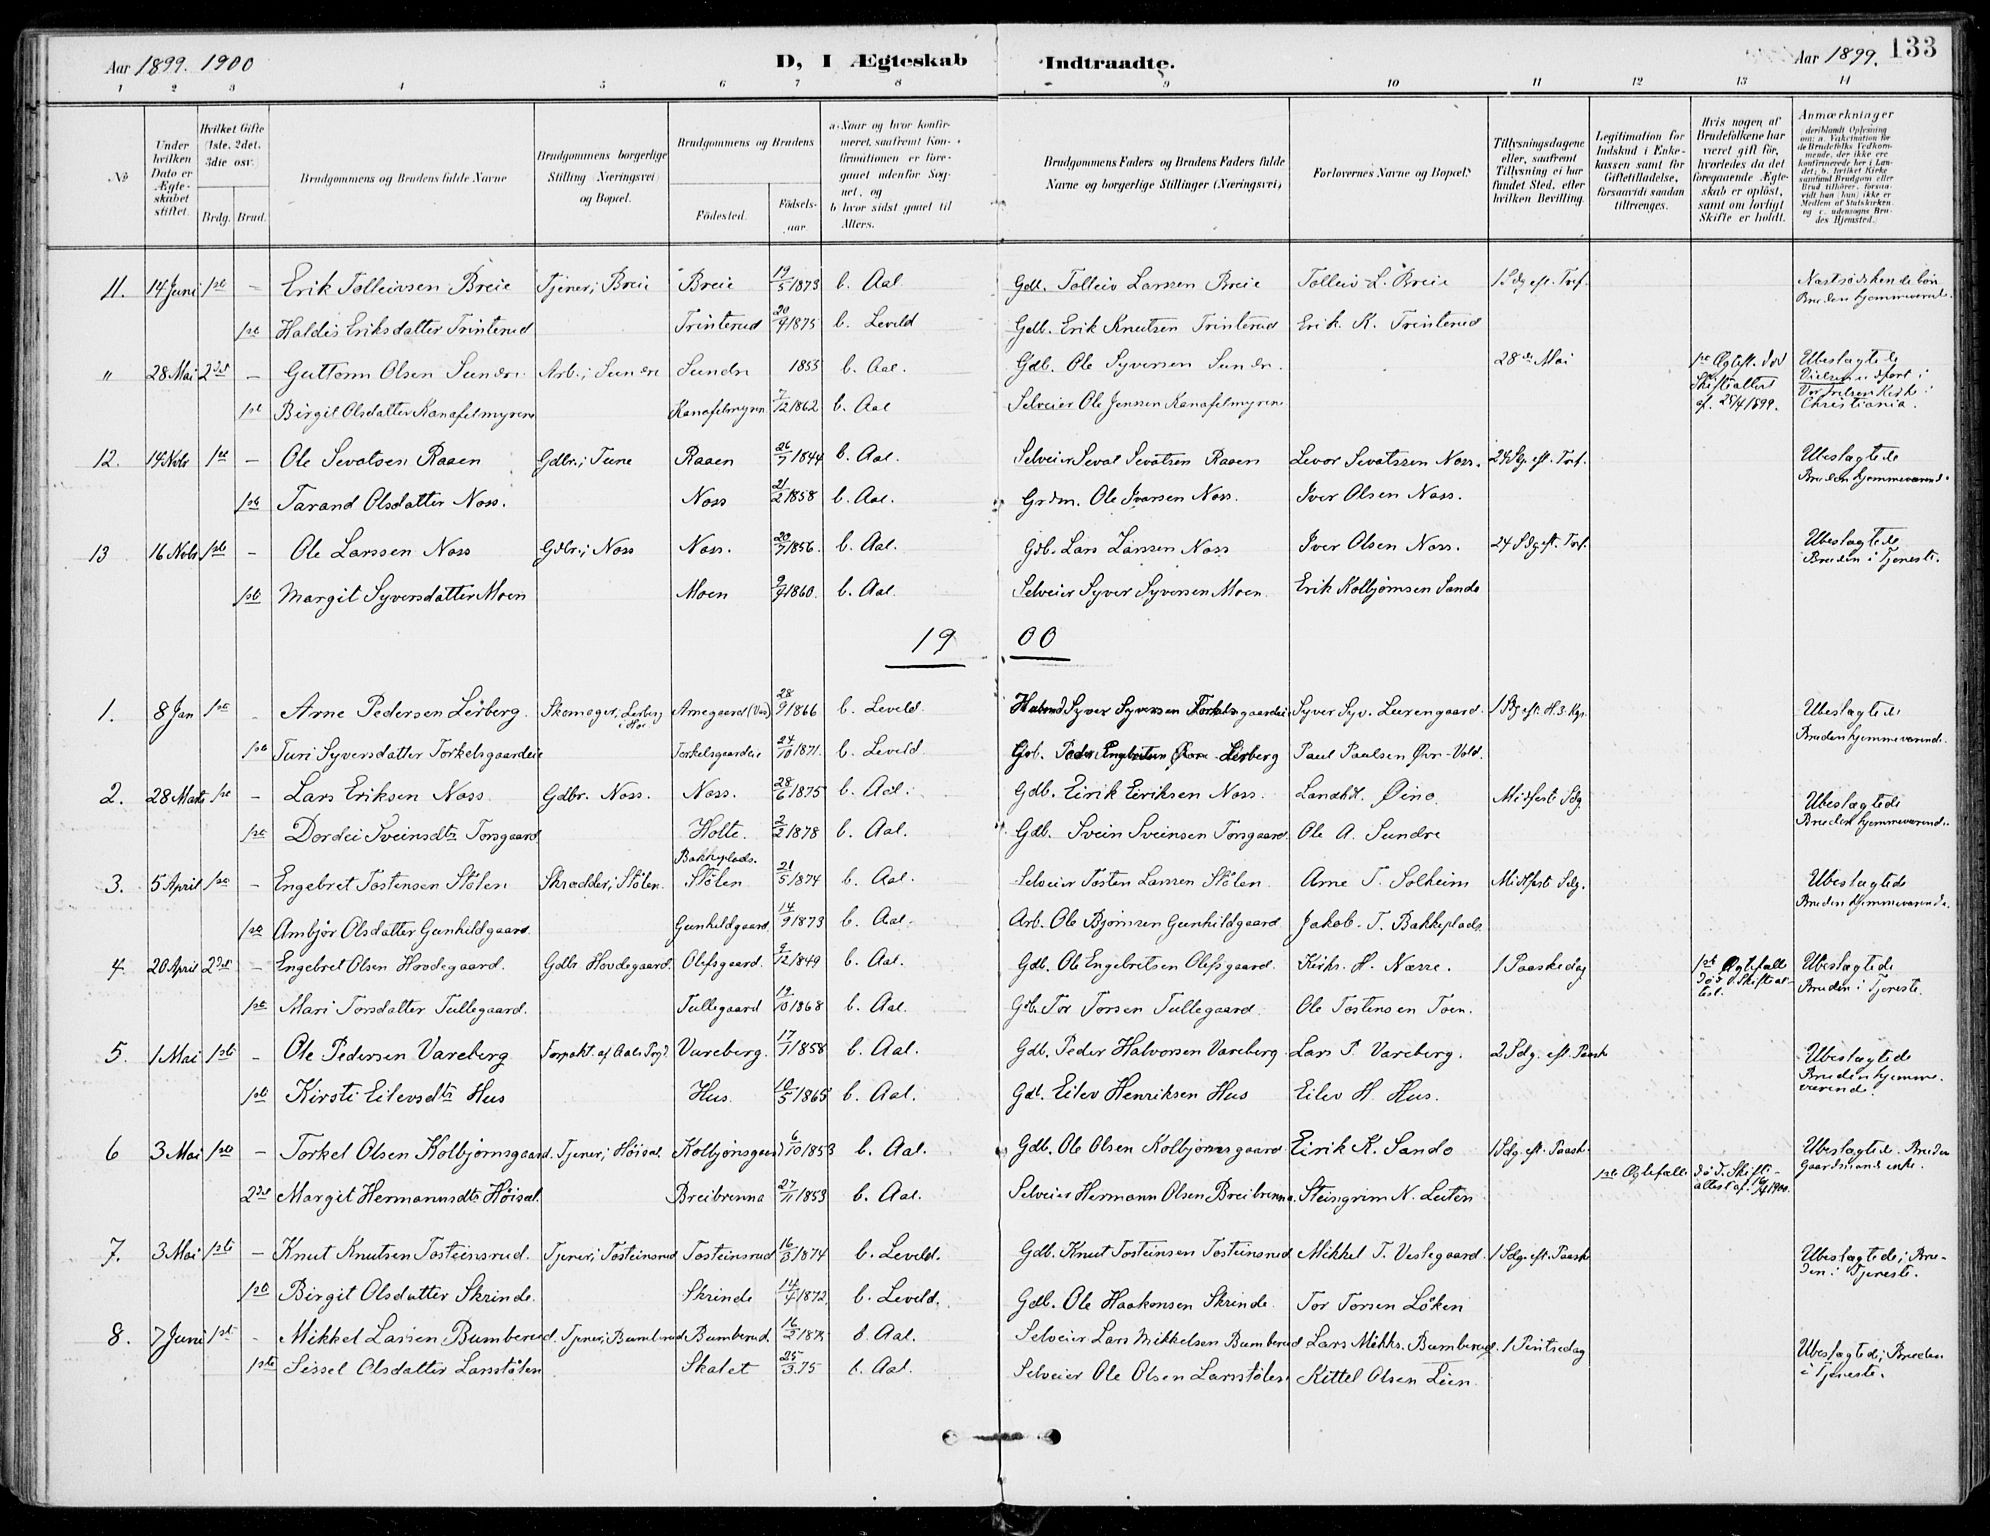 Aar 1899. 1900 D, I Ægteskab Indtraadte. Aar 1899. 133
1 2 3 4 5 6 7 8 9 10 11 12 13 14
No
Under hvilken Dato er Ægteskabet stiftet.
Hvilket Gifte (1ste, 2det, 3die osv.)
Brdg. Brud.
Brudgommens og Brudens fulde Navne
Brudgommens borgerlige Stilling (Næringsvei) og Bopæl.
Brudgommens og Brudens
Födested. Födsels-aar.
a. Naar og hvor konfirmeret, saafremt Konfirmationen er foregaaet udenfor Sognet, og
b. hvor sidst gaaet til Alters.
Brudgommens Faders og Brudens Faders fulde Navne og borgerlige Stillinger (Næringsvei)
Forlovernes Navne og Bopæl.
Tillysningsdagene eller, saafremt Tillysning ei har fundet Sted, efter hvilken Bevilling.
Legitimation for Indskud i Enkekassen samt for Giftetilladelse, forsaavidt saadan tiltrænges.
Hvis nogen af Brudefolkene har været gift før, hvorledes da det foregaaende Ægteskab er opløst, samt om lovligt Skifte er holdt.
Anmærkninger
deriblandt Oplysning om: a. Vakcination for de Brudefolks Vedkommende, der ikke ere konfirmerede her i Landet; b. hvilket Kirkesamfund Brudgom eller Brud tilhører, forsaavidt han (hun) ikke er Medlem af Statskirken, og c. udensogns Brudes Hjemsted.
11. 14 Juni 1ste - Erik Tolleivsen Breie Tjener i Breie Breie 19/5 1873 b. Aal Gdb. Tolleiv Larssen Breie Tolleiv L. Breie 1 Sdg eft. Tref. Næstsødskendebørn
Bruden hjemmeværende.
1ste Haldis Eriksdatter Trinterud Trinterud 20/9 1875 b. Leveld Gdb. Erik Knutsen Trinterud Erik K. Trinterud
" 28 Mai 2det - Guttorm Olsen Sundre Arb. i Sundre Sundre 1855 b. Aal. Gdb. Ole Syversen Sundre. 28de Mai 1ste Ægtef. død Skifteattest af 25/4 1899. Ubeslægtede Vielsen udført i Vor Frelsers Kirke i Christiania.
1ste Birgit Olsdatter Kanafelmyrene Kanafelmyren 7/12 1862 b. Aal Selveier Ole Jenssen Kanafelmyrene
12. 14 Nobr 1ste - Ole Sevatsen Raaen Gdbr. i Tune Raaen 26/7 1844 b. Aal. Selveier Sevat Sevatsen Raaen Levor Sevatssen Noss. 24 Sdg. eft. Tref. Ubeslægtede
Bruden hjemmeværende.
1ste Tarand Olsdatter Noss. Noss 21/2 1858 b. Aal. Grdm. Ole Ivarsen Noss. Iver Olsen Noss.
13 16 Nobr 1ste - Ole Larssen Noss Gdbr. i Noss Noss. 20/7 1856. b. Aal. Gdb. Lars Larssen Noss Iver Olsen Noss. 24 Sdg. eft. Tref. Ubeslægtede
Bruden i Tjeneste.
1ste Margit Syversdatter Moen Moen 9/9 1860. b. Aal. Selveier Syver Syversen Moen. Erik Kolbjørnsen Sando
19 00
1. 8 Jan 1ste - Arne Pedersen Lerberg. Skomager, Lerberg i Hol Arnegaard (Vas) 28/9 1866 b. Leveld. Husmd. Syver Syversen Torkelsgaardeie Syver Syv. Leirengaard. 1 Sdg eft. H. 3 Kgr. Ubeslægtede
Bruden hjemmeværende.
1ste Turi Syversdatter Torkelsgaardeie Torkelsgaardeie 24/10 1871. b. Leveld. Gdb. Peder Engebretsen Lerberg Paul Paulsen Øvr-Vold.
2. 28 Marts 1ste - Lars Eriksen Noss. Gdbr. Noss. Noss. 28/6 1875 b. Aal. Gdb. Eirik Eiriksen Noss. Landh. Øino. Midfaste Sdg Ubeslægtede
Bruden hjemmeværende.
1ste Dordei Sveinsdtr Torsgaard Holte. 2/2 1878 b. Aal. Gdb. Svein Sveinsen Torsgaard. Ole A. Sundre
3. 5 April 1ste - Engebret Tostensen Stölen Skrædder i Stölen. Bakkeplads. Stölen 21/5 1874 b. Aal. Selveier Tosten Larssen Stölen. Arne T. Solheim Midfaste Sdg. Ubeslægtede
Bruden hjemmeværende.
1ste Ambjør Olsdatter Gunhildgaard Gunhildgaard. 14/9 1873 b. Aal. Arb. Ole Bjørnsen Gunhildgaard Jakob T. Bakkeplads.
4. 20 April 2det - Engebret Olsen Hovdegaard. Gdbr. Hovdegaard. Olefsgaard. 9/12 1849 b. Aal. Gdb. Ole Engebretsen Olefsgaard. Kirks. H. Næsse. 1 Paaskedag 1ste Ægtefælle død. Skifteattest. Ubeslægtede
Bruden i Tjeneste.
1ste Mari Torsdatter Tullegaard. Tullegaard 19/10 1868 b. Aal. Gdb. Tor Torsen Tullegaard. Ole Tostensen Toen.
5. 1 Mai 1ste - Ole Pedersen Vareberg Forpakt. af Aals Prgd. Vareberg. 17/7 1858 b. Aal. Gdb. Peder Halvorsen Vareberg. Lars P. Vareberg. 2 Sdg. eft. Paaske Ubeslægtede
Bruden hjemmeværende.
1ste Kirsti Eilevsdtr Hus Hus. 10/5 1865 b. Aal. Gdb. Eilev Henriksen Hus Eilev H. Hus.
6 3 Mai 1ste - Torkel Olsen Kolbjørnsgaard. Tjener i Høisæt. Kolbjørnsgaard 6/10 1853 b. Aal. Gdb. Ole Olsen Kolbjørnsgaard Eirik K. Sando 1 Sdg. eft. Paaske 1ste Ægtefælle død. Skifteattest af 16/4 1900. Ubeslægtede. Bruden Gaardmandsenke.
2det Margit Hermannsdtr Høisæt. Breibrenna 27/11 1853 b. Aal. Selveier Hermann Olsen Breibrenna. Steingrim N. Leiten.
7. 3 Mai 1ste - Knut Knutsen Tosteinsrud. Tjener i Tosteinsrud Tosteinsrud 16/3 1874 b. Leveld. Gdb. Knut Tosteinsen Tosteinsrud Mikkel T. Veslegaard. 1 Sdg. eft. Paaske Ubeslægtede; Bruden i Tjeneste.
1ste Birgit Olsdatter Skrinde. Skrinde 14/4 1872 b. Leveld. Gdb. Ole Haakonsen Skrinde. Tor Torsen Löken
8. 7 Juni 1ste - Mikkel Larsen Bumberud. Tjener i Bumberud Bumberud. 16/2 187 b. Aal. Selveier Lars Mikkelsen Bumberud Lars Mikks. Bumberud. 1 Pintsedag Ubeslægtede; Bruden i Tjeneste.
1ste Sissel Olsdatter Larsstölen Skalet 25/3.75 b. Aal. Selveier Ole Olsen Larsstölen Kittel Olsen Lien.